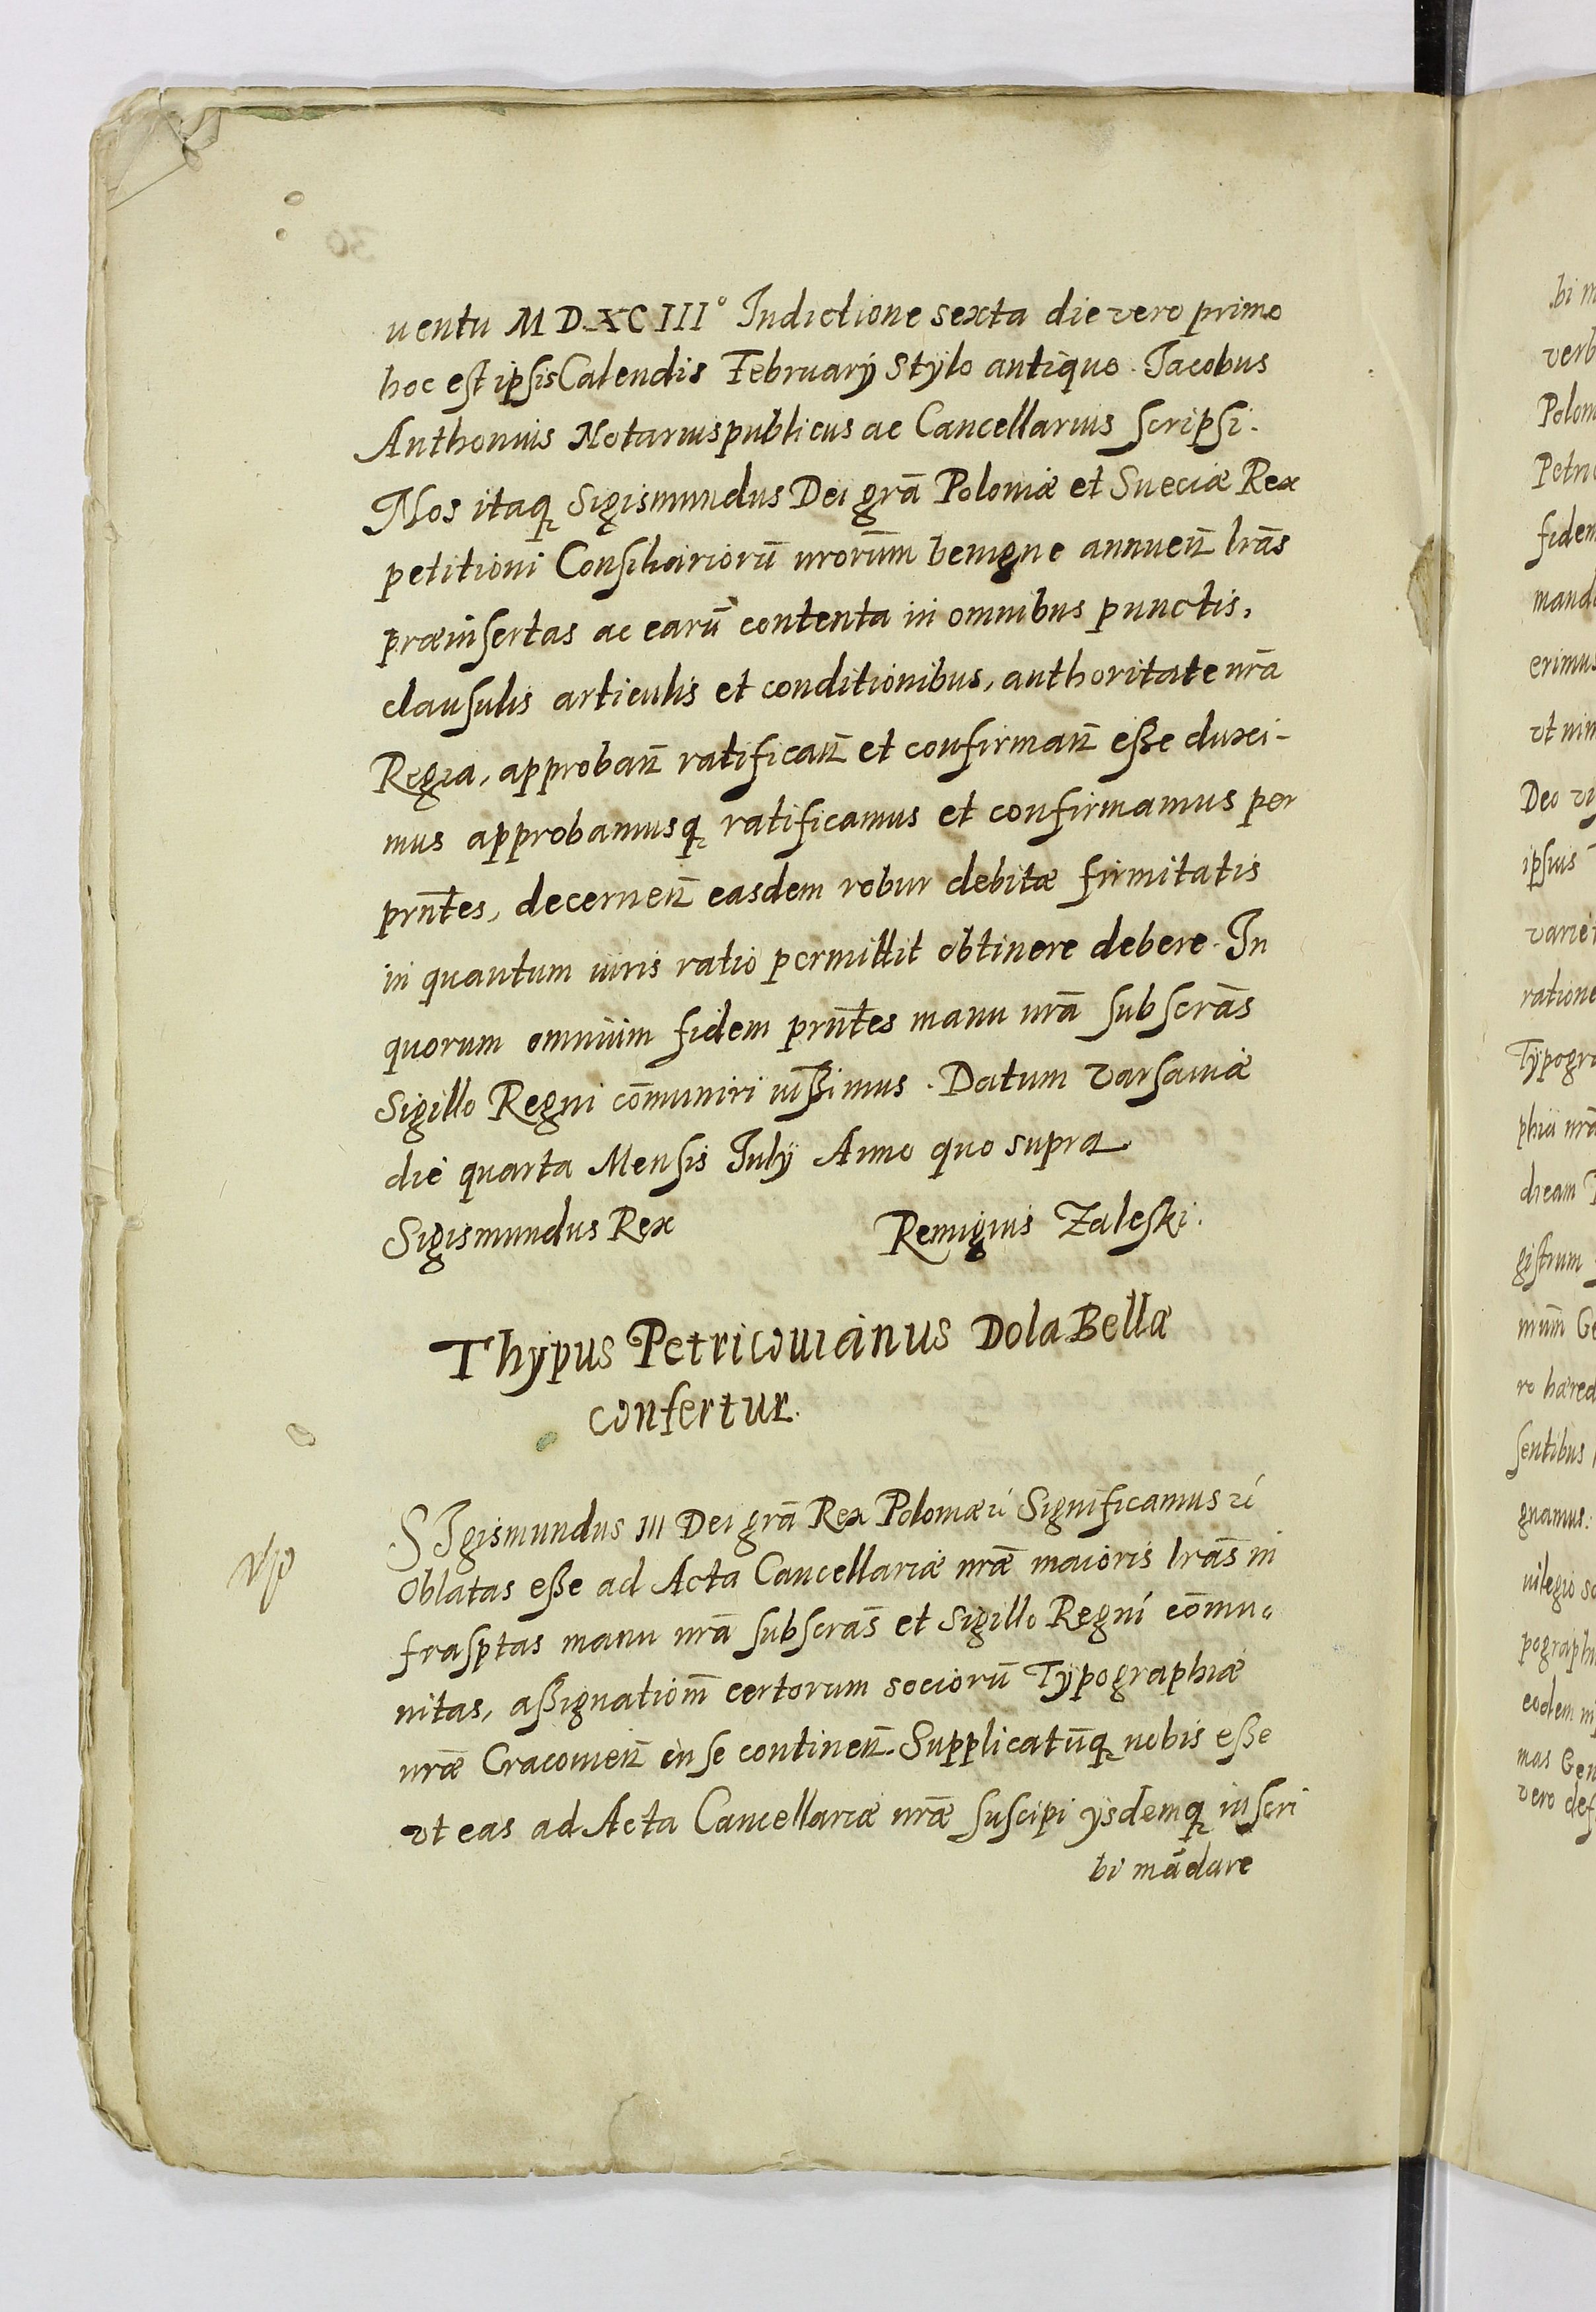 uentu M D.XCIII° Indictione sexta die vero primo
hoc est ipsis Calendis Februarÿ Stÿlo antiquo. Jacobus
Anthonius Notarius publicus ac Cancellarius scripsi.
Nos itaq; Sigismundus Dei grã Poloniæ et Sueciæ Rex
petitioni Consiliariorũ nrorũm benigne annuen̄ lrãs
præinsertas ac earũ contenta in omnibus punctis,
clausulis articulis et conditionibus, authoritate nrã
Regia, approban̄ ratifican̄ et confirman̄ eße duxi-
mus approbamusq; ratificamus et confirmamus per
prñtes, decernen̄ easdem robur debitæ firmitatis
in quantum iuris ratio permittit obtinere debere. In
quorum omnium fidem prñtes manu nrã subscrãs
Sigillo Regni cõmuniri iußimus. Datum Varsauiæ
die quarta Mensis Julÿ Anno quo supra
Sigismundus Rex Remigius Zaleski.
Thypus Petricouianus DolaBellæ
confertur.
SIgismundus III Dei grã Rex Poloniæ ꝛć Significamus ꝛć
Oblatas eße ad Acta Cancellariæ nrãe maioris lrãs in
frasptas manu nrã subscrãs et Sigillo Regni cõmu-
nitas, aßignationm̃ certorum sociorũ Tÿpographiæ
nrãe Cracouien̄ in se continen̄. Supplicatũq; nobis eße
vt eas ad Acta Cancellariæ nrãe suscipi ÿsdemq; inscri
bi mãdare
30
bi m
verb
Polon
Petri
fidem
manda
erimus
vt nim
Deo vi
ipsius
varie
ratione
Tÿpogra
phia nrã
dream
gistrum
mũm Ge
ro hæred
sentibus
gnamus:
uilegio so
pographi
eodem
mas Gen
vero def